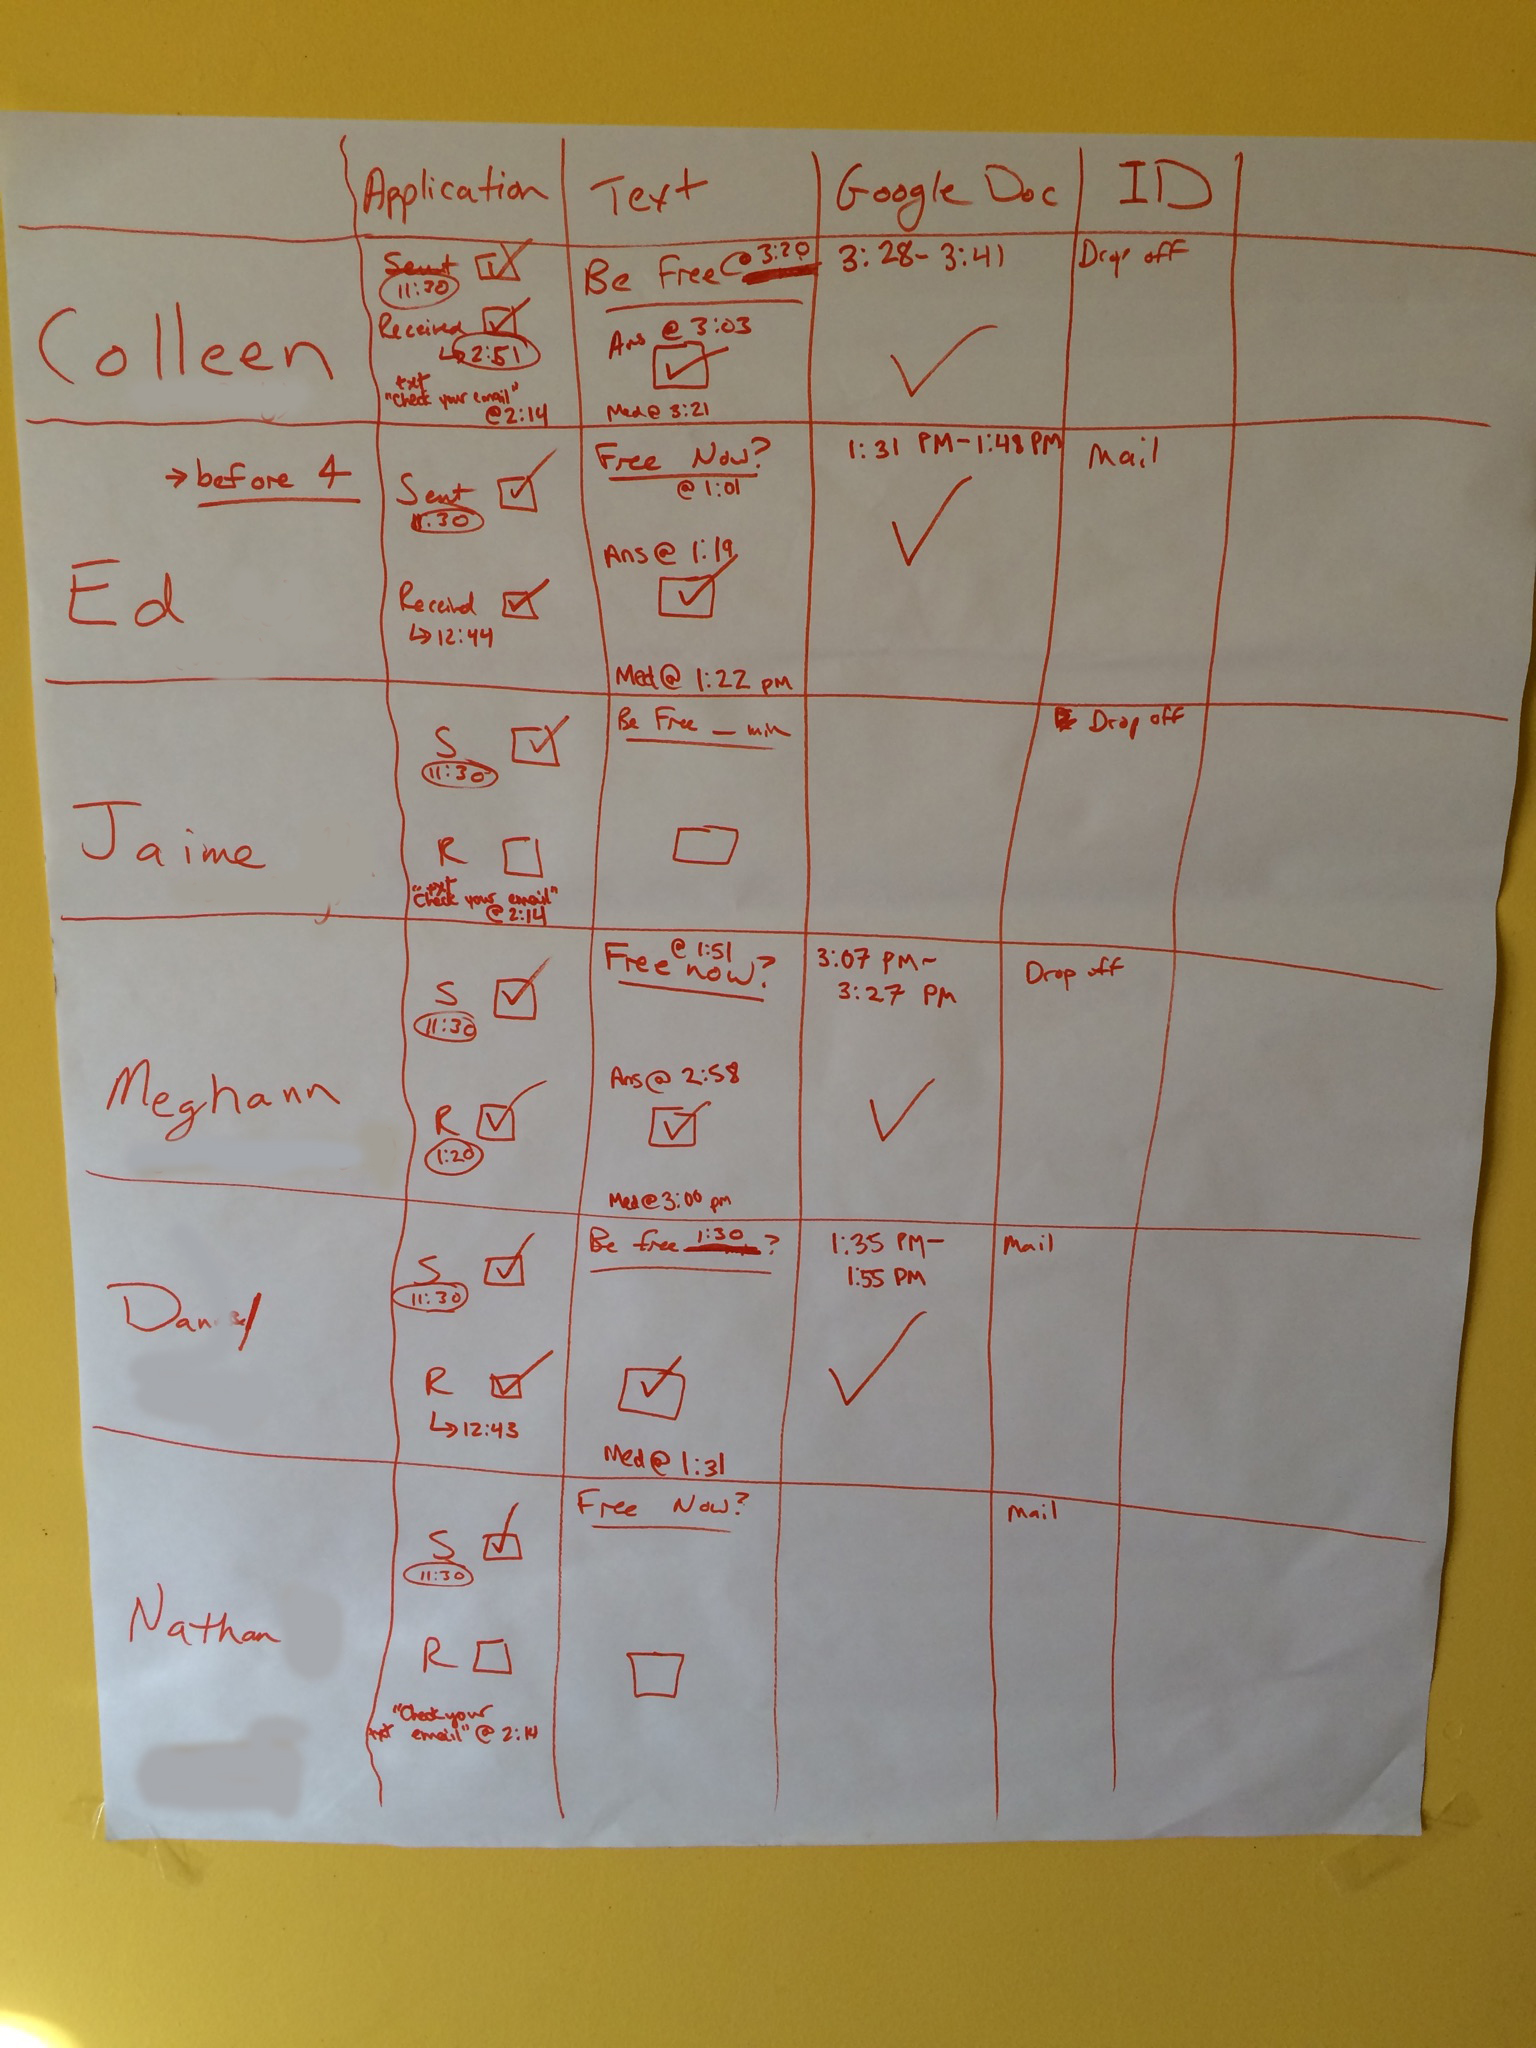 Application Text Google Doc ID
Colleen
Sent
11:30
Received
↳ 2:51
txt
"Check your email"
@ 2:14
Be Free @ 3:20
Ans @ 3:03
Med @ 3:21
3:28- 3:41
Drop off
→ before 4
Ed
Sent
11:30
Received
↳ 12:44
Free Now?
@ 1:01
Ans @ 1:19
Med @ 1:22 pm
1:31 PM - 1:48 PM
Mail
Jaime
S
11:30
R
txt
"Check your email"
@ 2:14
Be Free _ min
Drop off
Meghann
S
11:30
R
1:20
@ 1:51
Free now?
Ans @ 2:58
Med @ 3:00 pm
3:07 PM-
3:27 PM
Drop off
S
11:30
R
↳ 12:43
Be free 1:30 ?
Med @ 1:31
1:35 PM-
1:55 PM
Mail
Nathan
S
11:30
R
"Check your
txt email" @ 2:14
Free Now?
Mail